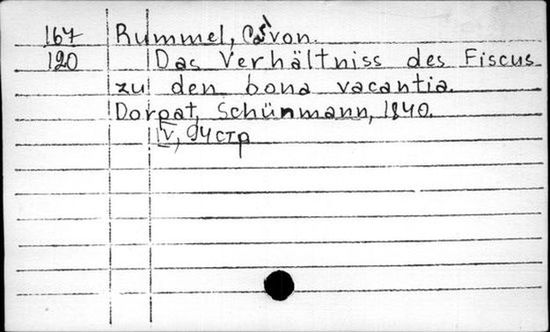 167 Rummel, von.
120 Das Verhältniss des Fiscus
zu den bona vacantia.
Dorpat, Schünmann, 1840.
IV, 94 стр